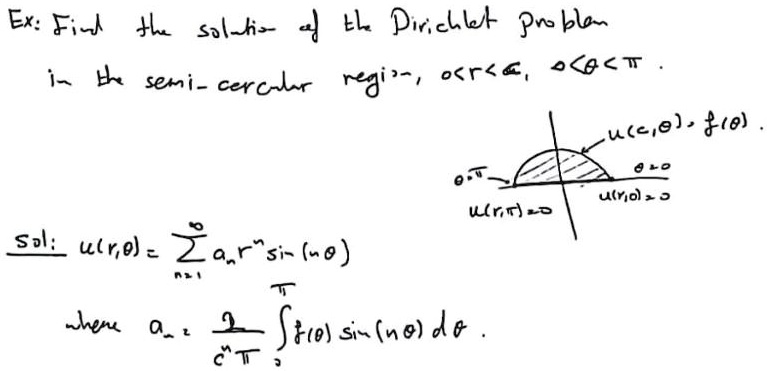 Ex: Find the solution of the Dirichlet problem
in the semi-circular region, 0<r<c, 0<θ<π.
u(c,θ)=f(θ).
θ=π
θ=0
u(r,π)=0
u(r,0)=0
Sol: u(r,θ) = ∑_{n=1}^{∞} a_n r^n sin(nθ)
where a_n = \frac{2}{c^n π} ∫_0^π f(θ) sin(nθ) dθ.